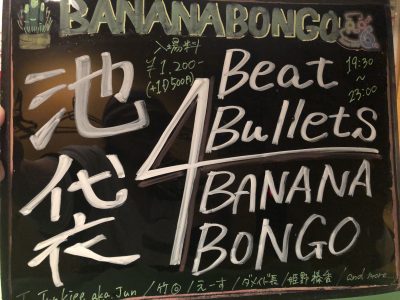 BANANABONGO
入場料
¥1,200-
(+1D500円)
19:30
~
23:00
池袋
4
Beat
Bullets
BANANA
BONGO
Junkiee aka Jun /竹@/えーす/ダメイド長/姫野揉香/and more...